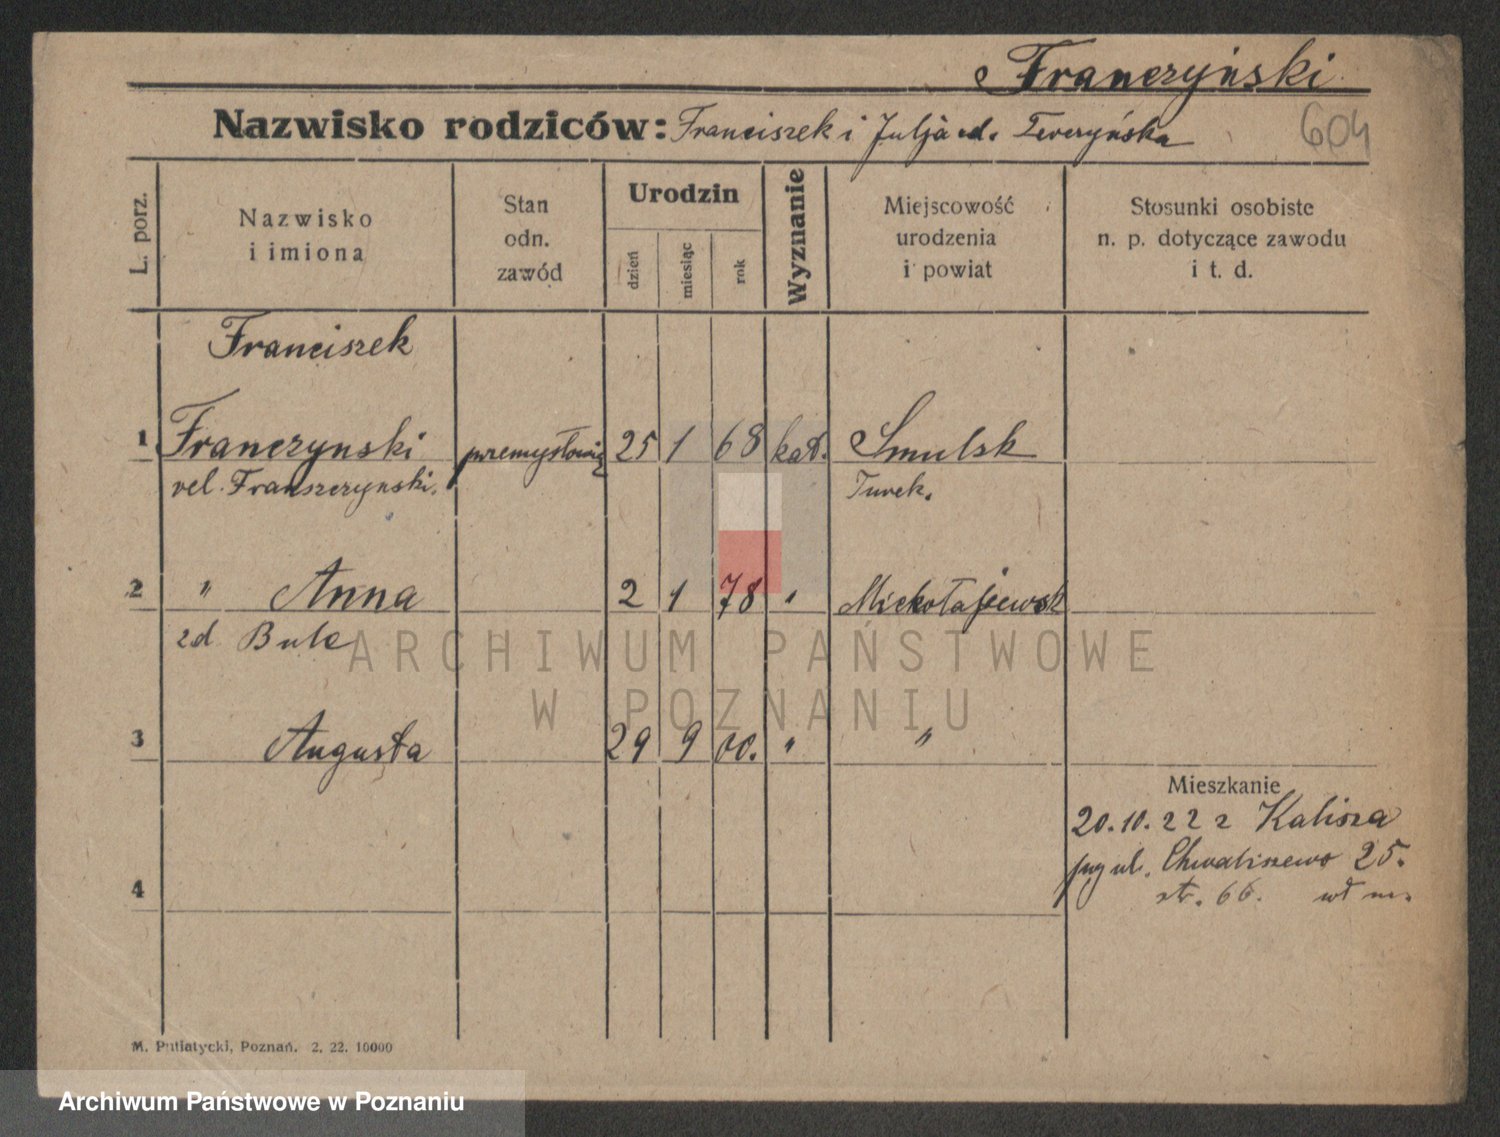 Franczyński
Nazwisko rodziców: Franciszek i Julja zd. Terczyńska
604
L. porz.
Nazwisko i imiona
Stan odn. zawód
Urodzin
dzień
miesiąc
rok
Wyznanie
Miejscowość urodzenia i powiat
Stosunki osobiste n. p. dotyczące zawodu i t. d.
Franciszek
1 Franczynski przemysłowiec 25 1 68 kat. Smulsk
vel. Franszczynski. Turek.
2 " Anna 2 1 78 "
zd Bule
3 Augusta 29 9 00. " "
Mieszkanie
20.10.22 z Kalisza
4 ul. Chwaliszewo 25.
str. 66. wł m.
M. Putiatycki, Poznań. 2. 22. 10000
ARCHIWUM PAŃSTWOWE
W POZNANIU
Archiwum Państwowe w Poznaniu